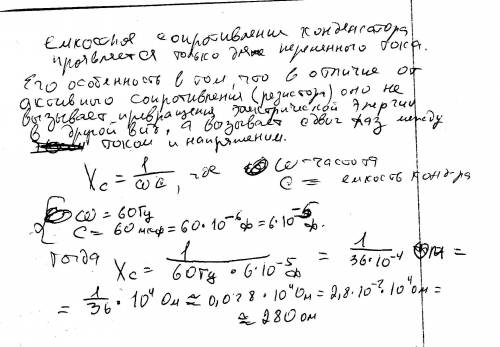 Емкостное сопротивление конденсатора
проявляется только для переменного тока.
Его особенность в том, что в отличие от
активного сопротивления (резистор) оно не
вызывает превращения электрической энергии
в другой вид, а вызывает сдвиг фаз между
током и напряжением.
Xc = 1/ωC, где ω - частота
C = емкость конд-ра
ω = 60Гц
C = 60 мкф = 60·10⁻⁶ф = 6·10⁻⁵ф.
тогда Xc = 1/(60Гц · 6·10⁻⁵ф) = 1/(36·10⁻⁴) Ом =
= 1/36 · 10⁴ Ом ≈ 0,028·10⁴Ом = 2,8·10⁻²·10⁴ом =
≈ 280 ом